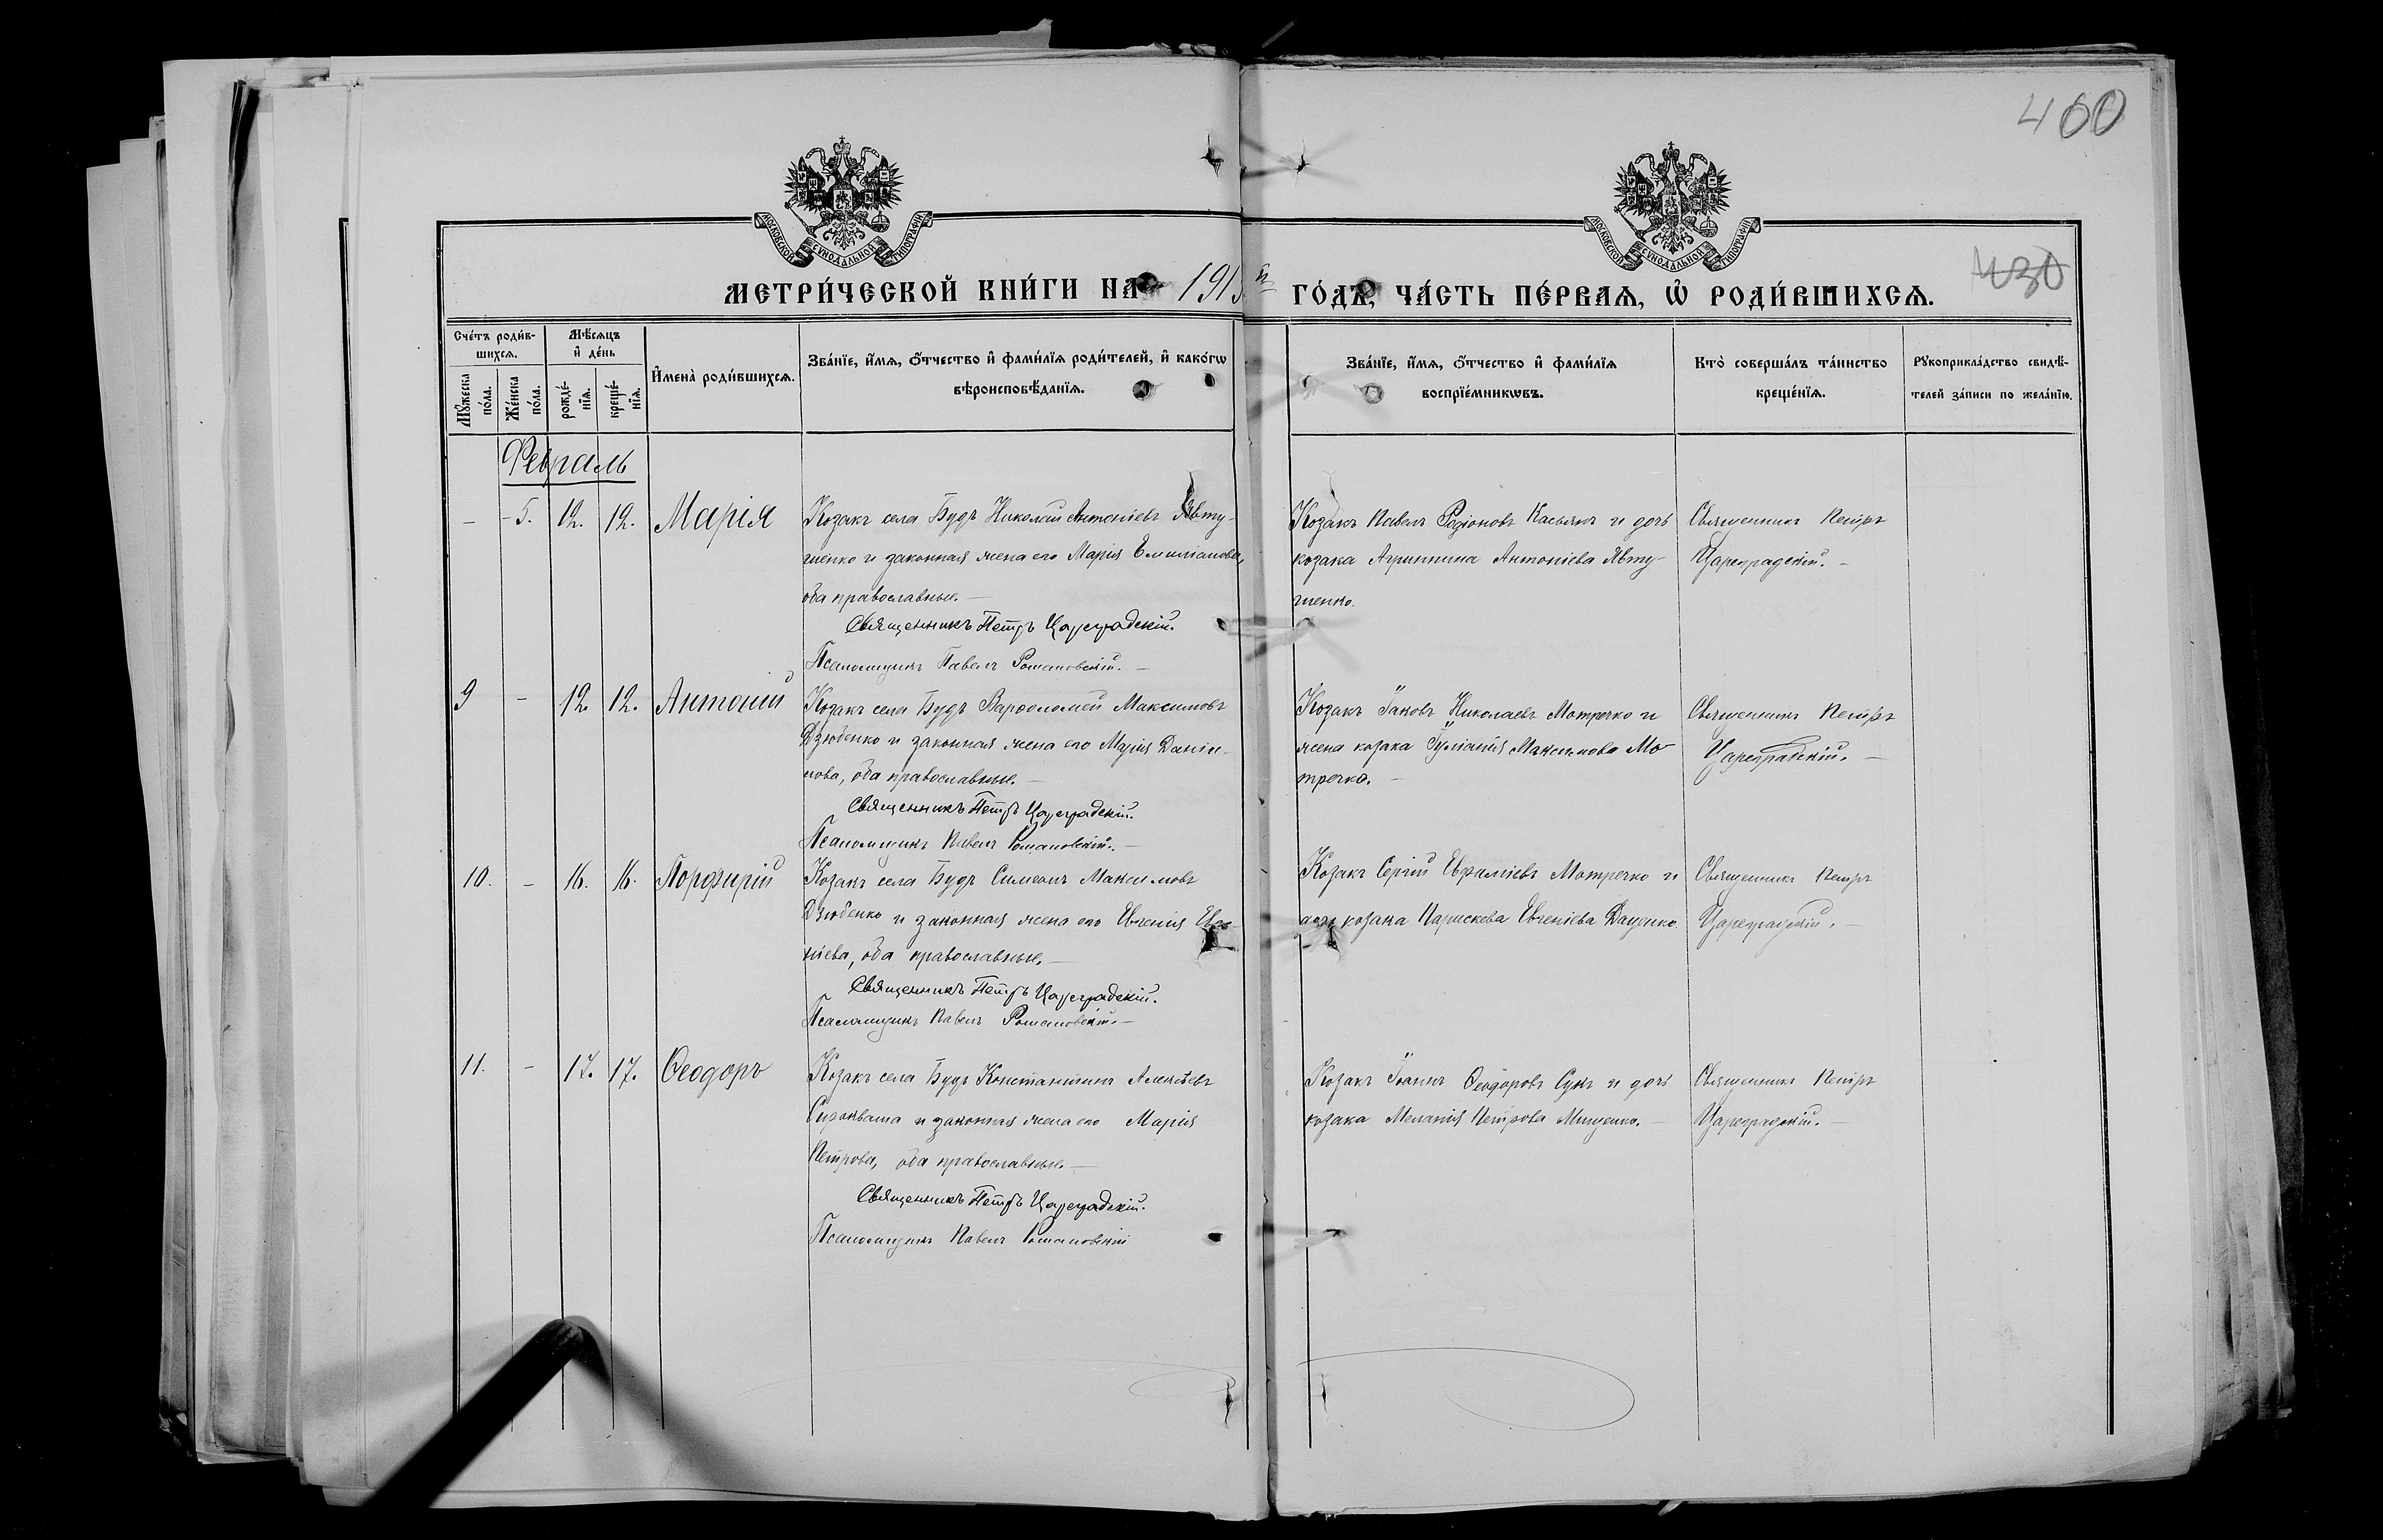 400
МОСКОВСКОЙ СУНОДАЛЬНОЙ ТИПОГРАФІИ
МОСКОВСКОЙ СУНОДАЛЬНОЙ ТИПОГРАФІИ
430
МЕТРИ́ЧЕСКОЙ КНИ́ГИ НА 1915й ГО́ДЪ, ЧА́СТЬ ПЕ́РВАѦ, Ѡ҆ РОДИ́ВШИХСѦ.
Сче́тъ роди́в-
шихсѧ.
Мꙋ́жеска
по́ла.
Же́нска
по́ла.
Мѣ́сѧцъ
и҆ де́нь
рожде́-
нїѧ.
креще́-
нїѧ.
И҆мена̀ роди́вшихсѧ.
Зва́нїе, и҆́мѧ, ѻ҆́тчество и҆ фами́лїѧ роди́телей, и҆ како́гѡ
вѣроисповѣ́данїѧ.
Зва́нїе, и҆́мѧ, ѻ҆́тчество и҆ фами́лїѧ
воспрїе́мникѡвъ.
Кто̀ соверша́лъ та́инство
креще́нїѧ.
Рꙋкоприкла́дство свидѣ́-
телей за́писи по жела́нїю.
Февраль
— -5. 12. 12. Марія
Козакъ села Будъ Николай Антоніевъ Явту-
шенко и законная жена его Марія Емиліанова,
оба православные. —
Священникъ Петръ Цареградскій.
Псаломщикъ Павелъ Романовскій. —
Козакъ Павелъ Родіоновъ Касьянъ и дочь
козака Агриппина Антоніева Явту-
шенко.
Священникъ Петръ
Цареградскій. —
9 — 12. 12. Антоній
Козакъ села Будъ Варѳоломей Максимовъ
Дзюбенко и законная жена его Марія Даніи-
лова, оба православные. —
Священникъ Петръ Цареградскій.
Псаломщикъ Павелъ Романовскій. —
Козакъ Іаковъ Николаевъ Мотречко и
жена козака Іуліанія Максимова Мо-
тречко. —
Священникъ Петръ
Цареградскій. —
10. — 16. 16. Порфирій
Козакъ села Будъ Симеонъ Максимовъ
Дзюбенко и законная жена его Евгенія Евге-
ніева, оба православные. —
Священникъ Петръ Цареградскій.
Псаломщикъ Павелъ Романовскій. —
Козакъ Сергій Евфиміевъ Мотречко и
дочь козака Параскева Евгеніева Даценко.
Священникъ Петръ
Цареградскій. —
11. — 17. 17. Ѳеодоръ
Козакъ села Будъ Константинъ Алексѣевъ
Сироваша и законная жена его Марія
Петрова, оба православные. —
Священникъ Петръ Цареградскій.
Псаломщикъ Павелъ Романовскій
Козакъ Іоаннъ Ѳеодоровъ Сукъ и дочь
козака Меланія Петрова Мищенко. —
Священникъ Петръ
Цареградскій. —